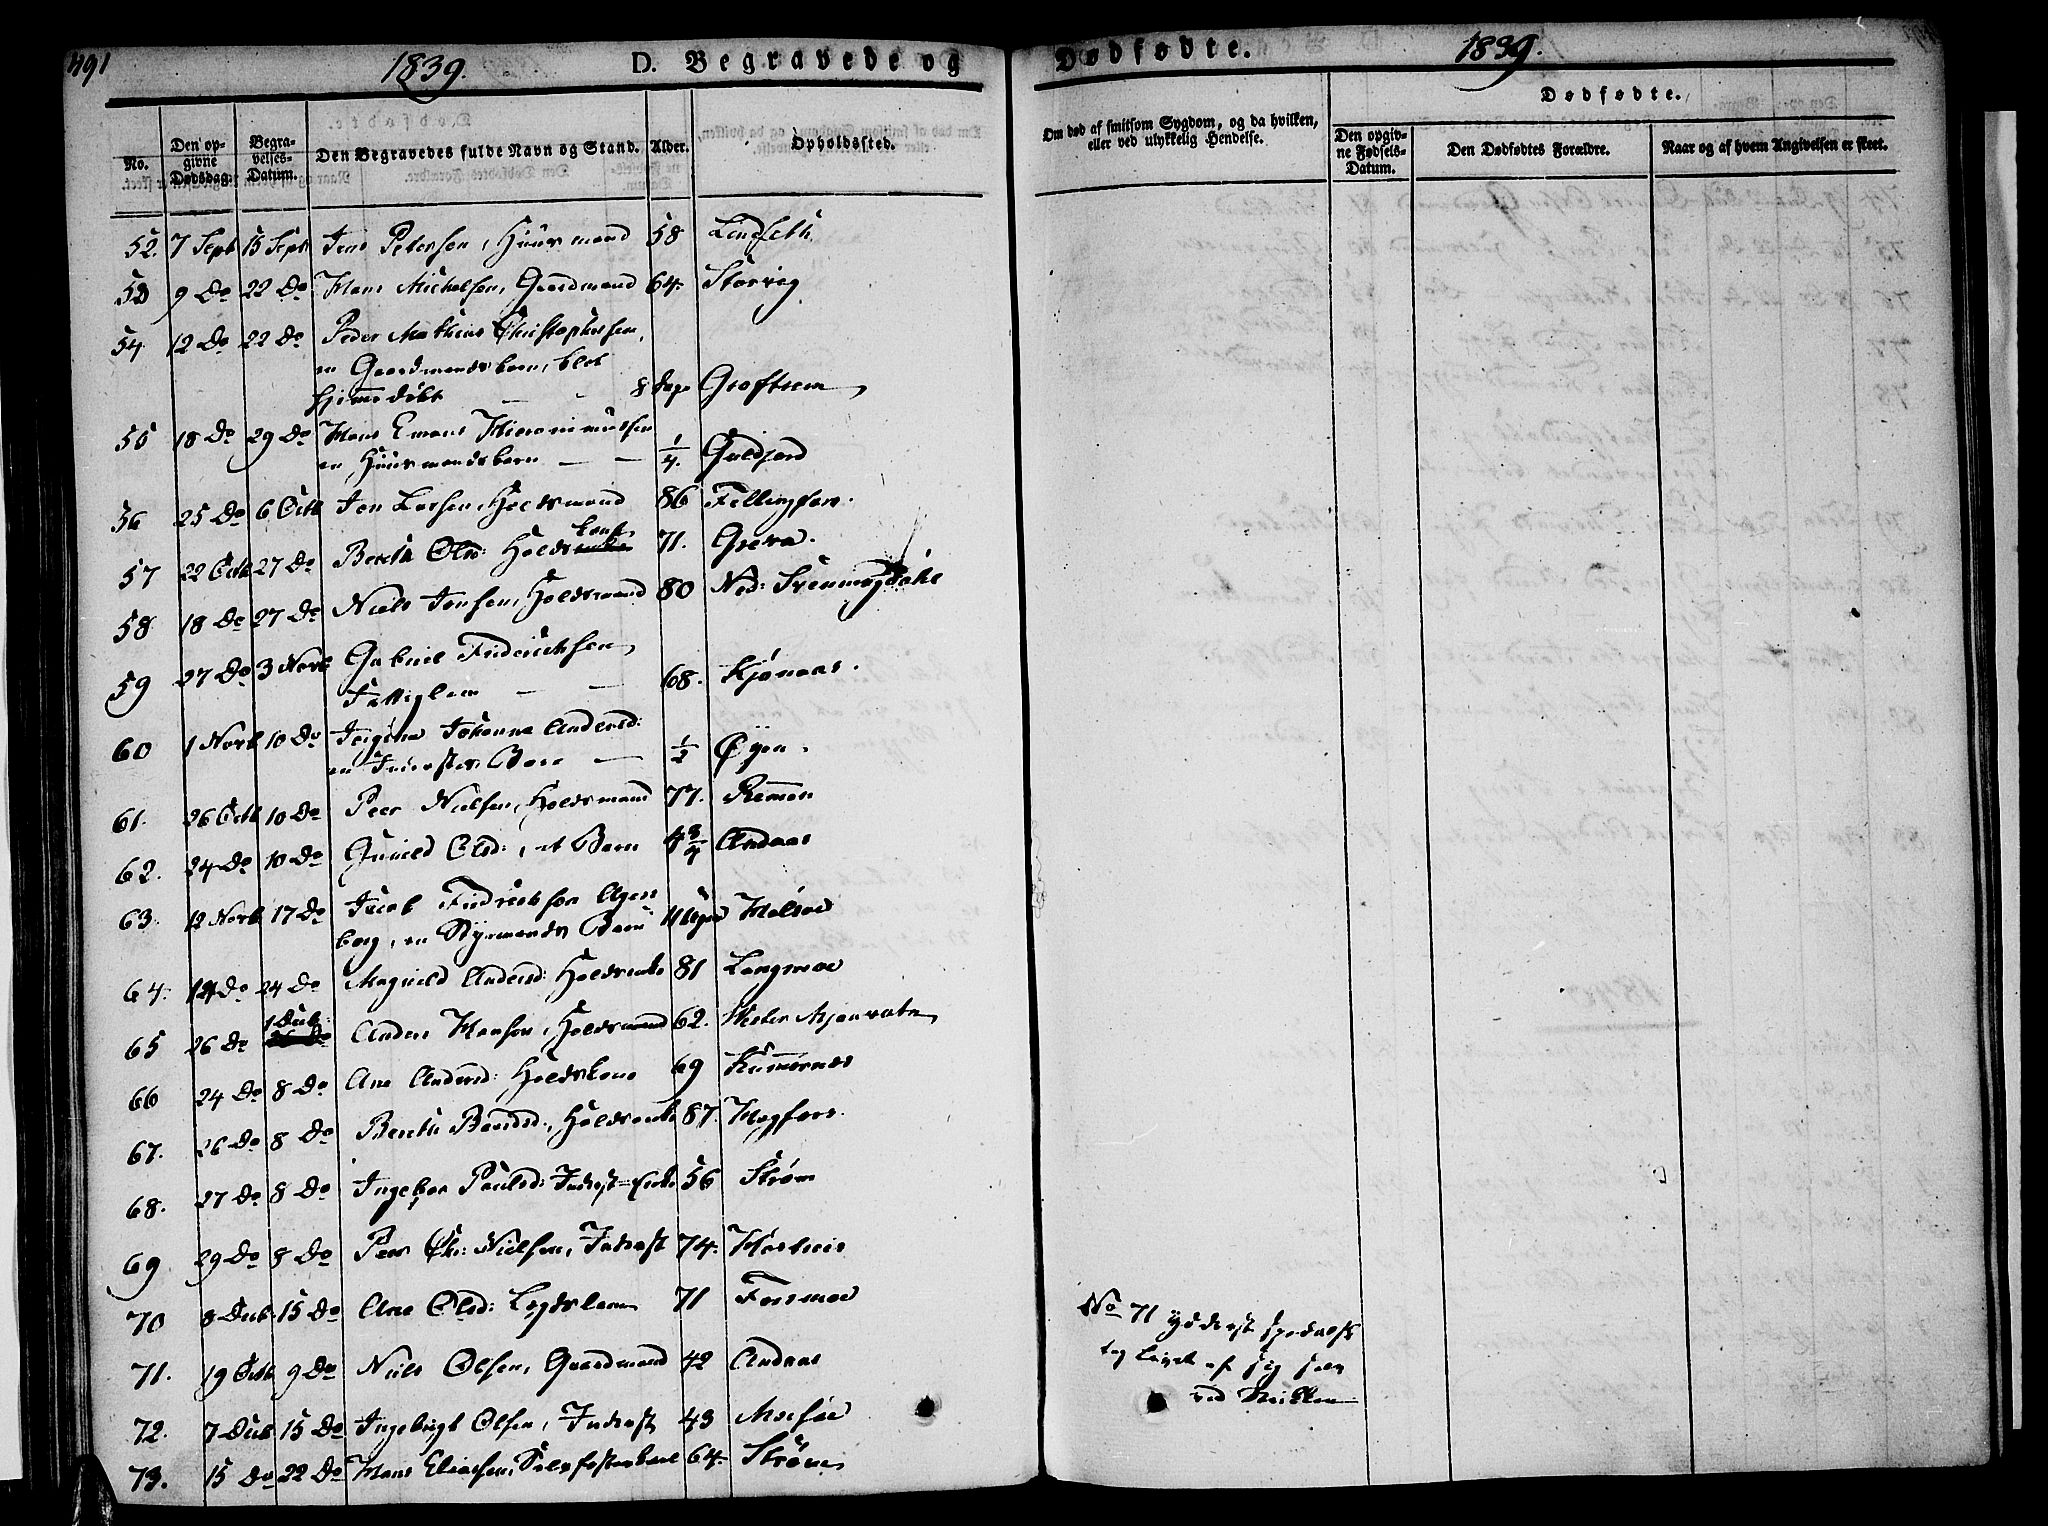 491
1839.
D. Begravede og
No.
Den opgivne Dødsdag.
Begravelses-Datum.
Den Begravedes fulde Navn og Stand.
Alder.
Opholdssted.
52. 7 Sept 15 Sept Jens Petersen, Huusmand 58 Lindseth
53 9 Do 22 Do Hans Michelsen, Gaardmand 64. Storvig
54 12 Do 22 Do Peder Mathias Christophersen,
en Gaardmandsbarn, blot
hjemmedøbt — — 8 Dage
55 18 Do 29 Do Hans Hieronimussen
en Huusmandsbarn — — 1/4.
56 25 Do 6 Octb Jon Larsen, Holdsmand 86 Fellingfors.
57 22 Octb 27 Do Berith Olsd: Holdskone 71.
58 18 Do 27 Do Niels Jonsen, Holdsmand 80 Ned:
59 27 Do 3 Novb Gabriel Friderichsen,
Fattiglem — — 68. Kjønaas.
60 1 Novb 10 Do Johanna Andersd:
en Inderstes Barn — 1/2 Øyen.
61. 26 Octb 10 Do Peer Nielsen, Holdsmand 77. Remmen
62. 24 Do 10 Do Gunild Olsd:, et Barn 4 3/4 Andaas
63. 12 Novb 17 Do Jacob Fridrechsen Agerborg, en Styrmands Barn
64. 14 Do 24 Do Magnild Andersd: Holdsenke 81 Langmoe
65 26 Do 1 Decb: Anders Hansen, Holdsmand 62. Vester Mjaavatn
66 24 Do 8 Do Ane Andersd: Holdskone 69
67. 26 Do 8 Do Berith Bendsd:, Holdsenke 87.
68. 27 Do 8 Do Ingebor Paulsd: Inderst=Enke 56 Strøm
69 29 Do 8 Do Peer Chr: Nielsen, Inderst 74.
70 8 Decb. 15 Do Ane Olsd: Legdslem 71 Forsmoe
71. 19 Octb 9 Do Niels Olsen, Gaardmand 42 Andaas
72. 7 Decb 15 Do Ingebrigt Olsen, Inderst 43
73. 15 Do 22 Do Hans Eliaesen, 64.
Dødfødte.
1839.
Om død af smitsom Sygdom, og da hvilken, eller ved ulykkelig Hendelse.
Dødfødte.
Den opgivne Fødsels-Datum.
Den Dødfødtes Forældre.
Naar og af hvem Angivelsen er skeet.
No 71 yderst spedalsk
tog Livet af sig selv
ved